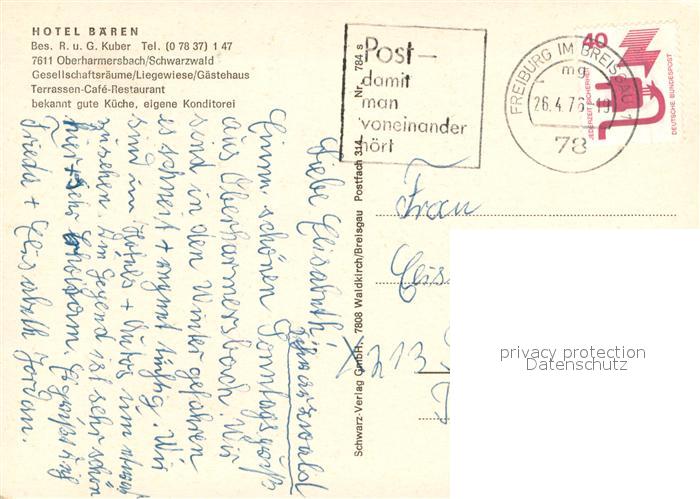 HOTEL BÄREN
Bes. R. u. G. Kuber Tel. (0 78 37) 1 47
7611 Oberharmersbach/Schwarzwald
Gesellschaftsräume/Liegewiese/Gästehaus
Terrassen-Café-Restaurant
bekannt gute Küche, eigene Konditorei
Liebe Elisabeth!
Schwarzwald
Einen schönen Sonntagsgruß
aus Oberharmersbach. Wir
sind in den Winter gefahren
es schneit + regnet tüchtig. Wir
sind im Hotel + Autos um
Die Gegend ist sehr schön
hier + sehr erholsam. Es grüßt Dich
Frieda + Elisabeth Jordan.
Schwarz-Verlag GmbH. 7808 Waldkirch/Breisgau Postfach 314 Nr. 784 s
Post-
damit
man
voneinander
hört
FREIBURG IM BREISGAU 1
mg
26.4.76-19
78
40
JEDERZEIT SICHERHEIT
DEUTSCHE BUNDESPOST
Frau
X213
privacy protection
Datenschutz